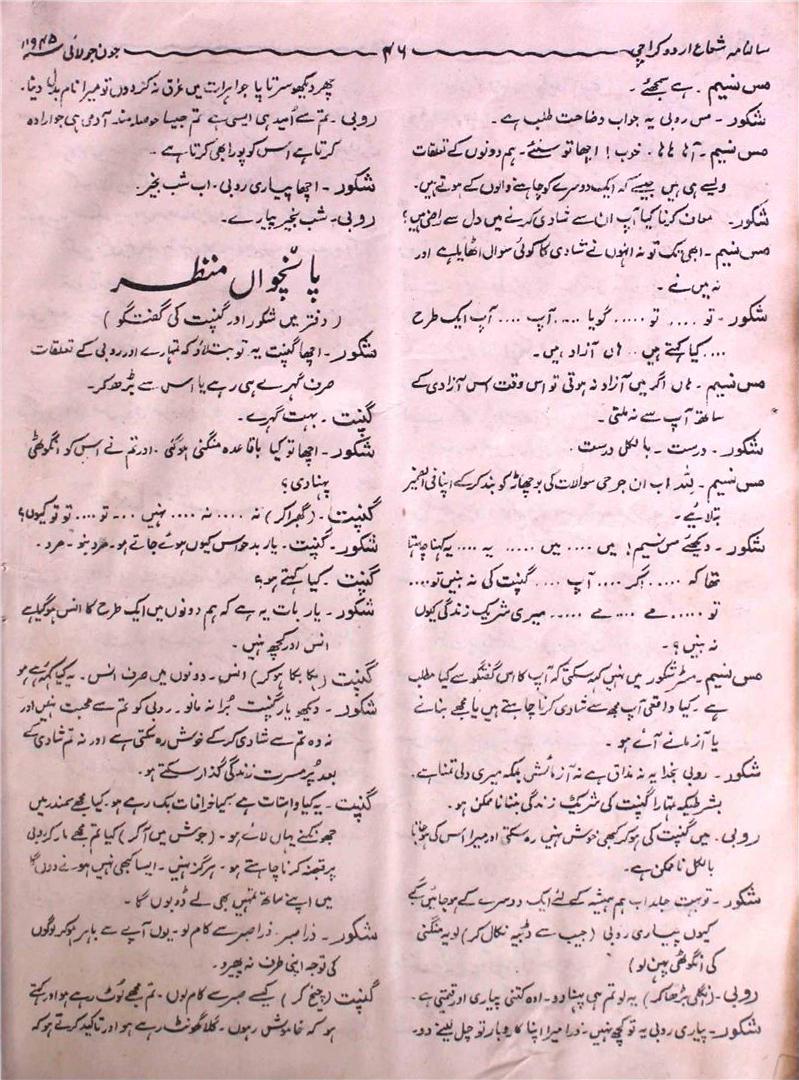 سالنامہ شعاع اردو کراچی ۴۶ جون جولائی ۱۹۴۵ء
مس نسیم ۔ بے سمجھے ۔
شکور ۔ مس روبی یہ جواب وضاحت طلب ہے ۔
مس نسیم ۔ آہا ہاہا ۔ خوب ! اچھا تو سنئے ۔ ہم دونوں کے تعلقات
ویسے ہی ہیں جیسے کہ ایک دوسرے کو چاہنے والوں کے ہوتے ہیں ۔
شکور ۔ معاف کرنا کیا آپ ان سے شادی کرنے میں دل سے راضی ہیں ؟
مس نسیم ۔ ابھی تک تو نہ انہوں نے شادی کا کوئی سوال اٹھایا ہے اور
نہ میں نے ۔
شکور ۔ تو .... تو ..... گویا .... آپ .... آپ ایک طرح
.... کیا کہتے ہیں ... ہاں آزاد ہیں ۔
مس نسیم ۔ ہاں اگر میں آزاد نہ ہوتی تو اس وقت اس آزادی کے
ساتھ آپ سے نہ ملتی ۔
شکور ۔ درست ۔ بالکل درست ۔
مس نسیم ۔ للہ اب ان جرحی سوالات کی بوچھاڑ کو بند کر کے اپنا مافی الضمیر
بتلائیے ۔
شکور ۔ دیکھئے مس نسیم ! میں .... میں ..... یہ .... یہ کہنا چاہتا
تھا کہ ..... اگر .... آپ .... گنپت کی نہ بنیں تو ....
تو ..... مے .... مے ..... میری شریک زندگی کیوں
نہ بنیں ؟ ۔
مس نسیم ۔ مسٹر شکور میں نہیں کہہ سکتی کہ آپ کا اس گفتگو سے کیا مطلب
ہے ۔ کیا واقعی آپ مجھ سے شادی کرنا چاہتے ہیں یا مجھے بنانے
یا آزمانے آئے ہو ۔
شکور ۔ روبی بخدا یہ نہ مذاق ہے نہ آزمائش بلکہ میری دلی تمنا ہے ۔
بشرطیکہ تمہارا گنپت کی شریک زندگی بننا ناممکن ہو ۔
روبی ۔ میں گنپت کی ہو کر کبھی خوش نہیں رہ سکتی اور میرا اس کی ہو جانا
بالکل ناممکن ہے ۔
شکور ۔ تو بہت جلد اب ہم ہمیشہ کے لئے ایک دوسرے کے ہو جائیں گے
کیوں پیاری روبی ( جیب سے ڈبیہ نکال کر ) لو یہ منگنی
کی انگوٹھی پہن لو )
روبی ۔ ( انگلی بڑھا کر ) یہ لو تم ہی پہنا دو ۔ اوہ کتنی پیاری اور قیمتی ہے ۔
شکور ۔ پیاری روبی یہ تو کچھ نہیں ۔ ذرا میرا اپنا کاروبار تو چل لینے دو ۔
پھر دیکھو سر تا پا جواہرات میں غرق نہ کر دوں تو میرا نام بدل دینا ۔
روبی ۔ تم سے اُمید ہی ایسی ہے تم جیسا حوصلہ مند آدمی ہی جو ارادہ
کرتا ہے اس کو پورا بھی کرتا ہے ۔
شکور ۔ اچھا پیاری روبی ۔ اب شب بخیر ۔
روبی ۔ شب بخیر پیارے ۔
پانچواں منظر
( دفتر میں شکور اور گنپت کی گفتگو )
شکور ۔ اچھا گنپت یہ تو بتلاؤ کہ تمہارے اور روبی کے تعلقات
صرف گہرے ہی رہے یا اس سے بڑھ کر ۔
گنپت ۔ بہت گہرے ۔
شکور ۔ اچھا تو کیا باقاعدہ منگنی ہو گئی ۔ اور تم نے اس کو انگوٹھی
پہنا دی ؟
گنپت ۔ ( گھبرا کر ) نہ .... نہ .... نہیں ... تو .... تو تو کیوں ؟
شکور ۔ گنپت ۔ یار بد حواس کیوں ہوئے جاتے ہو ۔ مرد بنو ۔ مرد ۔
گنپت ۔ کیا کہتے ہو ؟
شکور ۔ یار بات یہ ہے کہ ہم دونوں میں ایک طرح کا انس ہو گیا ہے
انس اور کچھ نہیں ۔
گنپت ( ہکا بکا ہو کر ) انس ۔ دونوں میں صرف انس ۔ یہ کیا کہہ رہے ہو
شکور ۔ دیکھو یار گنپت بُرا نہ مانو ۔ روبی کو تم سے محبت نہیں اور
نہ وہ تم سے شادی کر کے خوش رہ سکتی ہے اور نہ تم شادی کے
بعد پُر مسرت زندگی گذار سکتے ہو ۔
گنپت ۔ یہ کیا واہیات ہے کیا خرافات بک رہے ہو ۔ کیا مجھے سمندر میں
جھونکنے یہاں لائے ہو ۔ ( جوش میں آ کر ) کیا تم مجھے مار کر روبی
پر قبضہ کرنا چاہتے ہو ۔ ہرگز نہیں ۔ ایسا کبھی نہیں ہونے دوں گا
میں اپنے ساتھ تمہیں بھی لے ڈوبوں گا ۔
شکور ۔ ذرا صبر ۔ ذرا صبر سے کام لو ۔ یوں آپے سے باہر ہو کر لوگوں
کی توجہ اپنی طرف نہ پھیرو ۔
گنپت ( چیخ کر ) کیسے صبر سے کام لوں ۔ تم مجھے لُوٹ رہے ہو اور کہتے
ہو کہ خاموش رہوں ۔ گلا گھونٹ رہے ہو اور تاکید کرتے ہو کہ